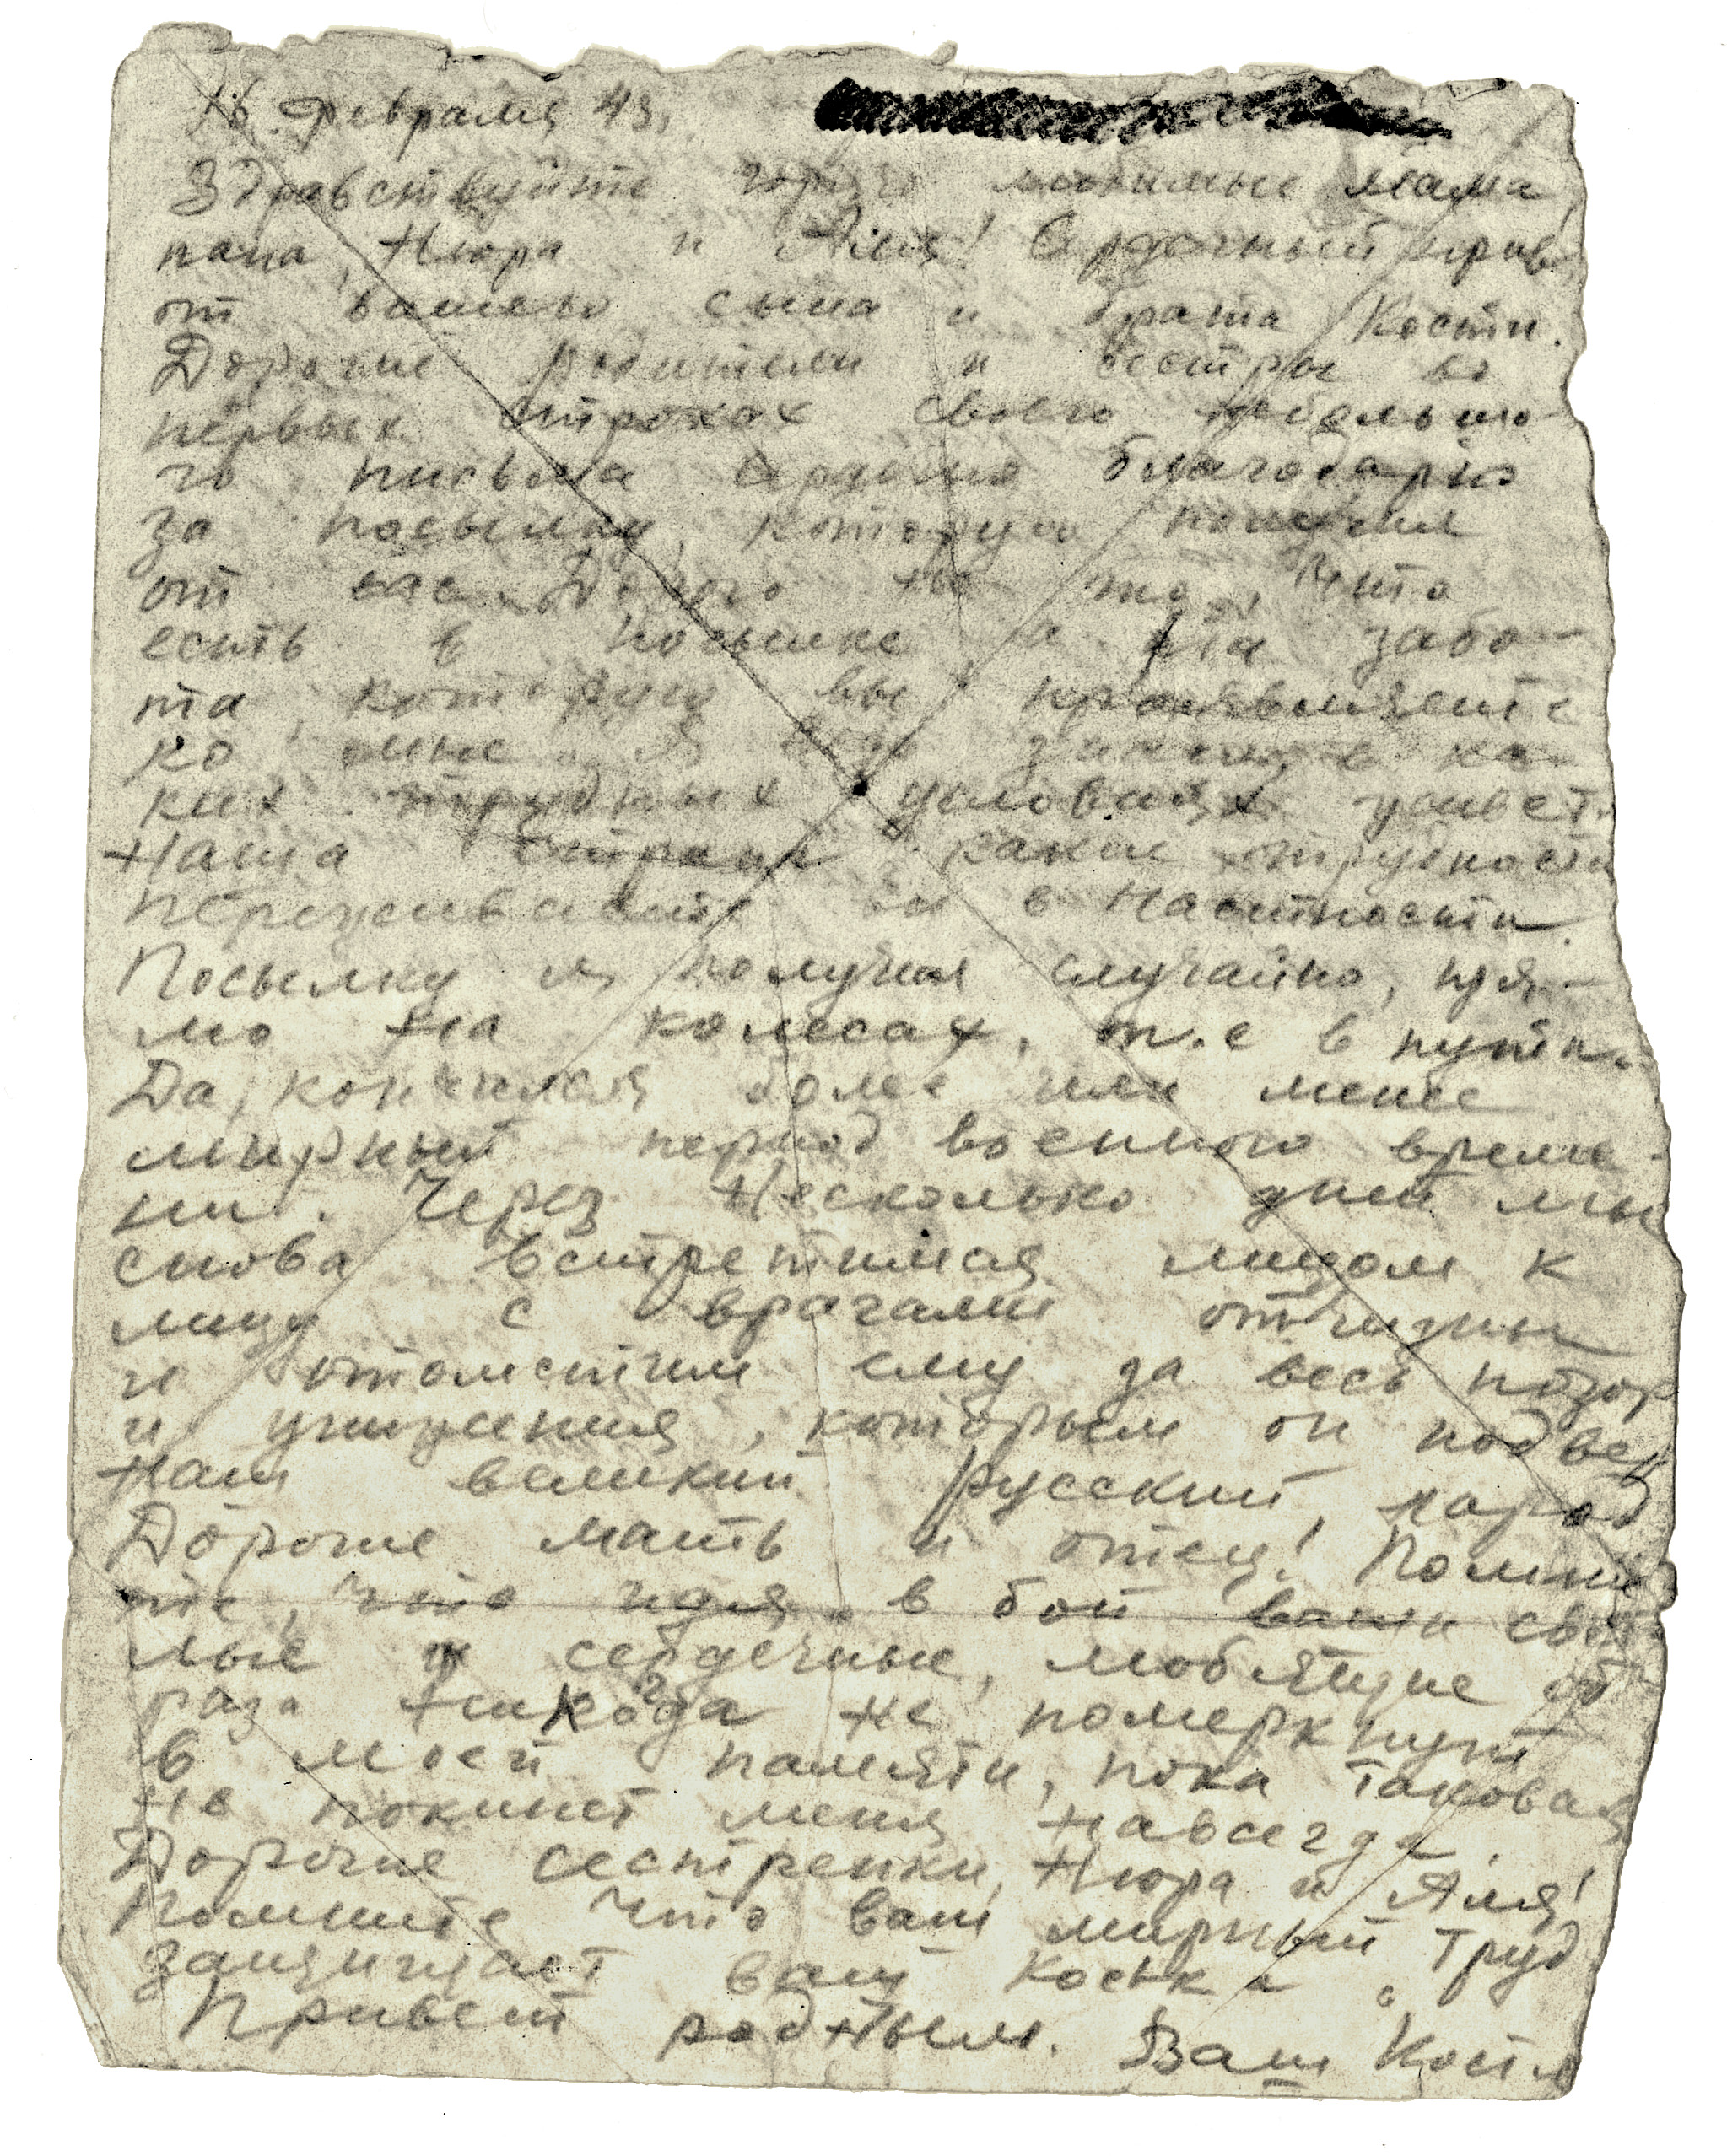 16 февраля 43.
Здравствуйте горячо любимые мама,
папа, Нюра и Аля! Сердечный прив.
от вашего сына и брата Кости.
Дорогие родители и сестры во
первых строках своего небольшо-
го письма сердечно благодарю
за посылку, которую получил
от вас. Дорого не то, что
есть в посылке, а та забо-
та, которую вы проявляете
ко мне. Я знаю в ка-
ких трудных условиях живет
Наша страна, какие трудности
переживаете вы в частности.
Посылку я получил случайно, пря-
мо на колесах, т.е в пути.
Да, кончился более или менее
мирный период военного време-
ни. Через несколько дней мы
снова встретимся лицом к
лицу с врагами отчизны
и отомстим ему за весь позор
и унижения, которым он подверг
Наш великий русский народ
Дорогие мать и отец! Помни-
те, что идя в бой ваши свет-
лые и сердечные, любящие об-
раза никогда не померкнут
в моей памяти, пока таковая
не покинет меня навсегда.
Дорогие сестренки, Нюра и Аля!
Помните что ваш мирный труд
защищает ваш Коська.
Привет родным. Ваш Костя